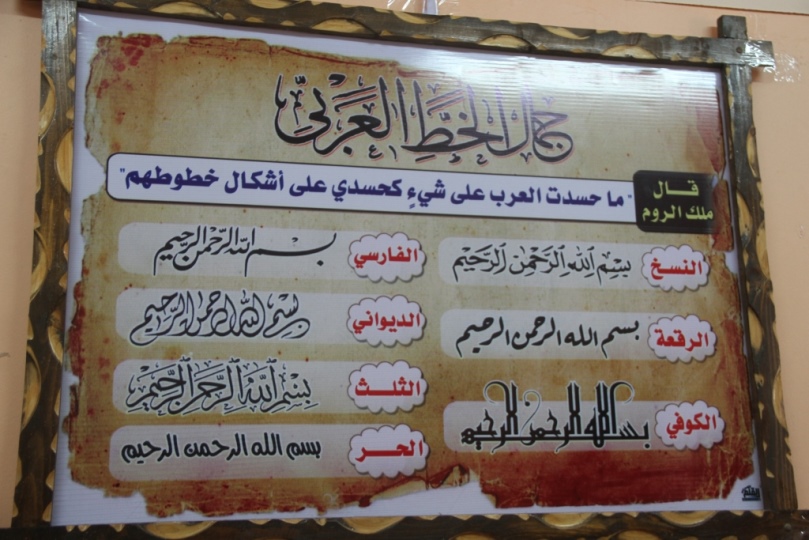 جمال الخط العربي
قال
ملك الروم
"ما حسدت العرب على شيءٍ كحسدي على أشكال خطوطهم"
النسخ
بِسْمِ اللَّهِ الرَّحْمَنِ الرَّحِيمِ
الفارسي
بسم الله الرحمن الرحيم
الرقعة
بسم الله الرحمن الرحيم
الديواني
بسم الله الرحمن الرحيم
الكوفي
بسم الله الرحمن الرحيم
الثلث
بِسْمِ اللَّهِ الرَّحْمَنِ الرَّحِيمِ
الحر
بسم الله الرحمن الرحيم